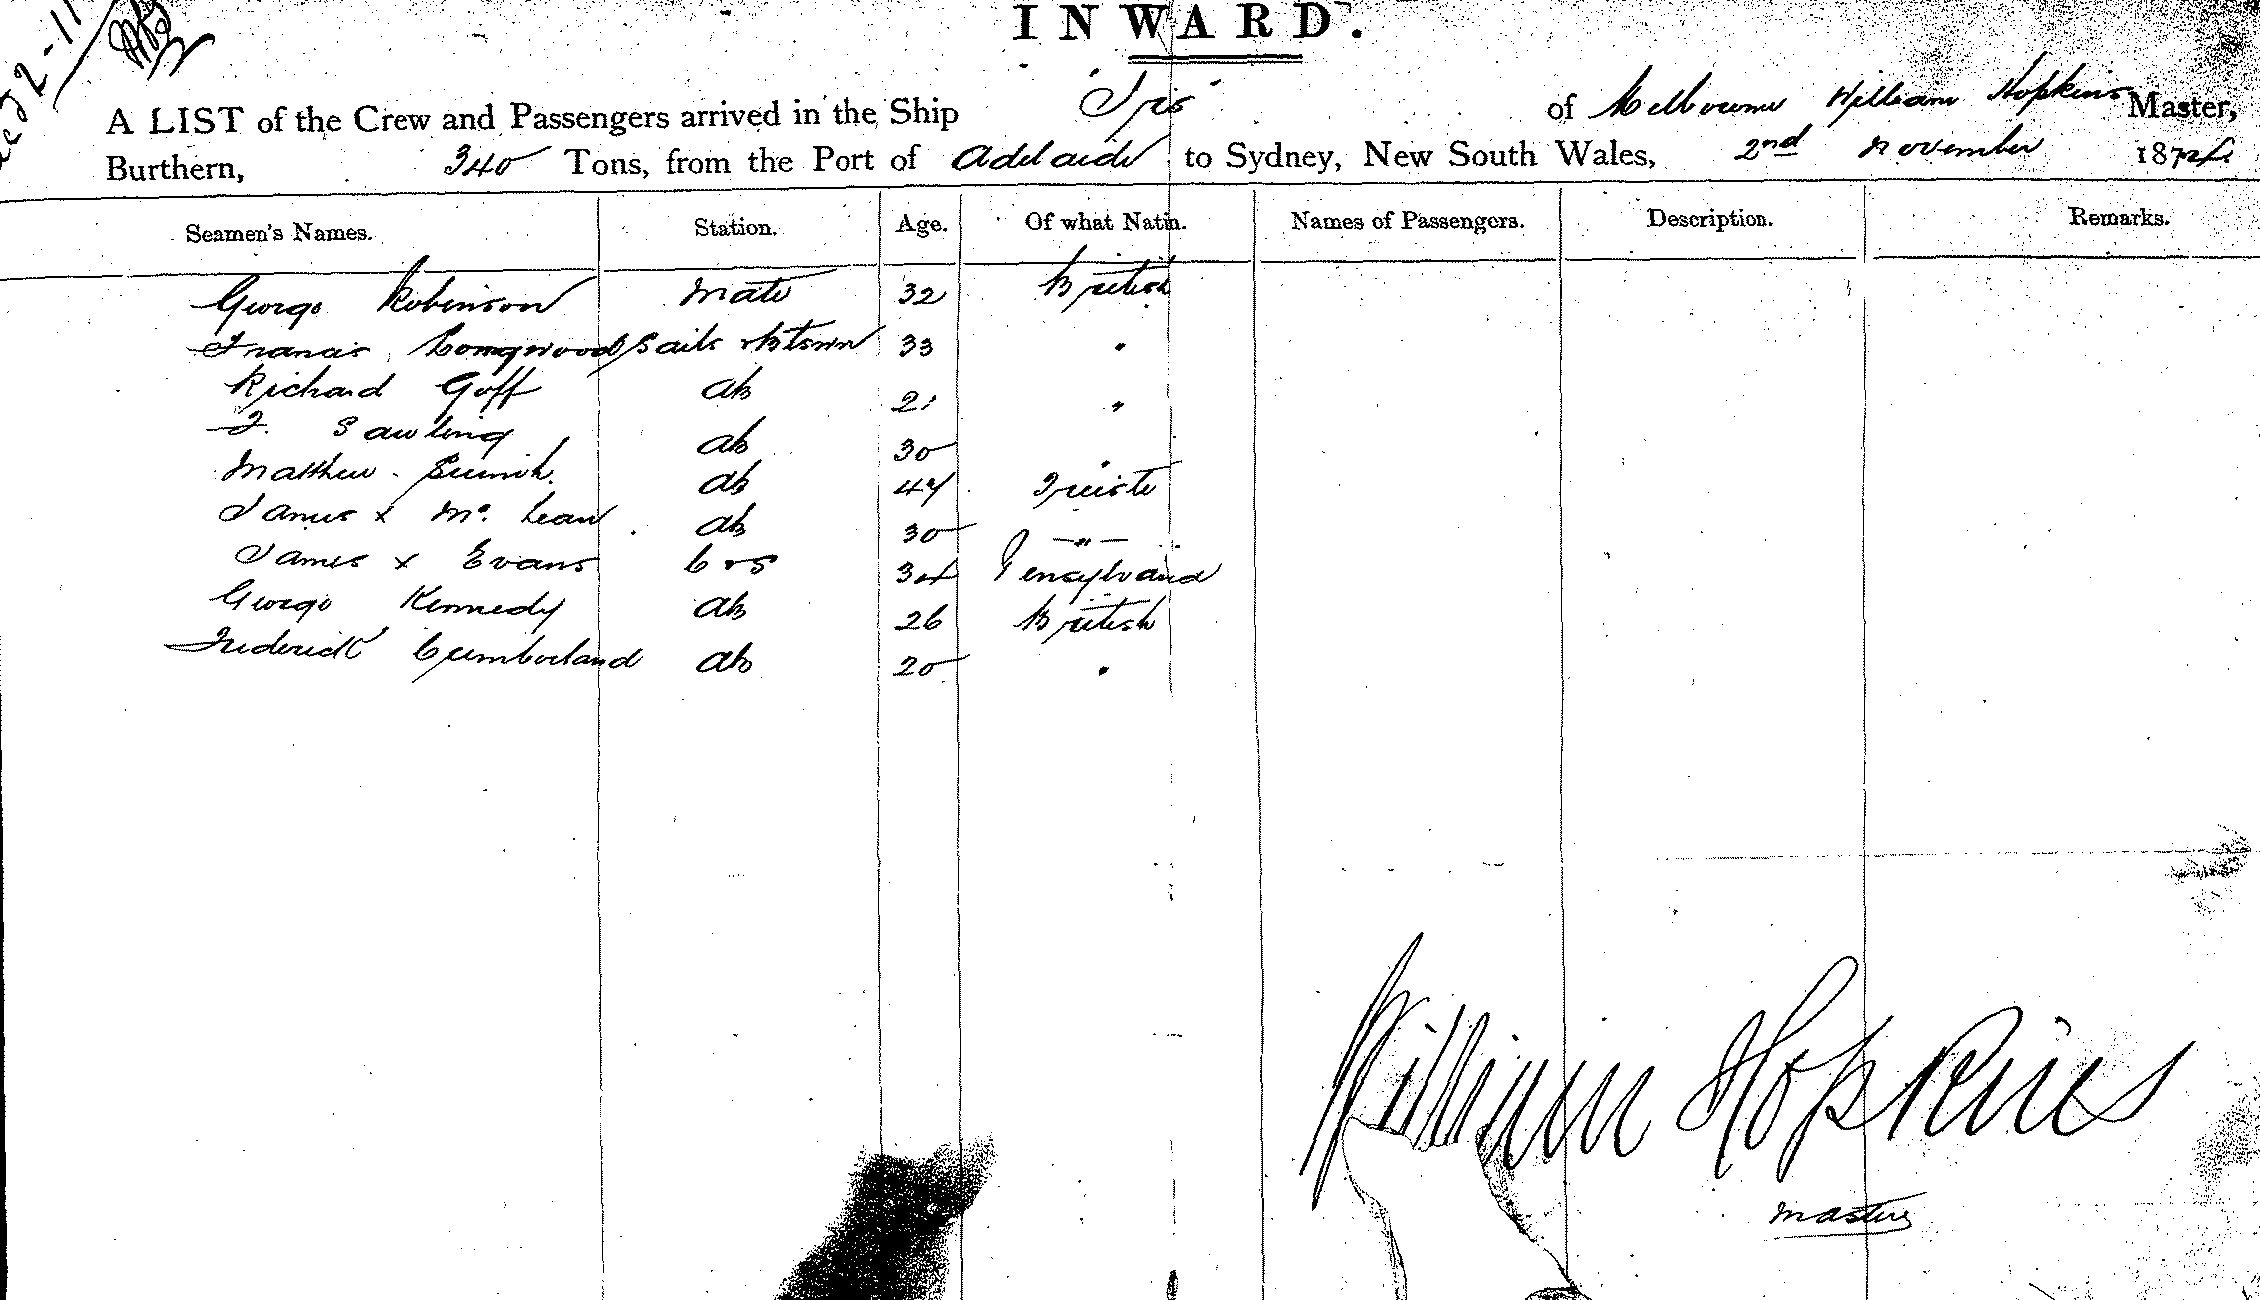 INWARD.
A LIST of the Crew and Passengers arrived in the Ship "Iris" of Melbourne William Hopkins Master,
Burthern, 340 Tons, from the Port of Adelaide to Sydney, New South Wales, 2nd November 1874
Seamen's Names. Station. Age. Of what Natin. Names of Passengers. Description. Remarks.
George Robinson Mate 32 British
Francis 33 "
Richard Goff ab 21 "
ab 30 "
Matthew ab 47
James x Mc. Lean ab 30 — " —
James x Evans 34
George Kennedy ab 26 British
Frederick Cumberland ab 20 "
William Hopkins
Master